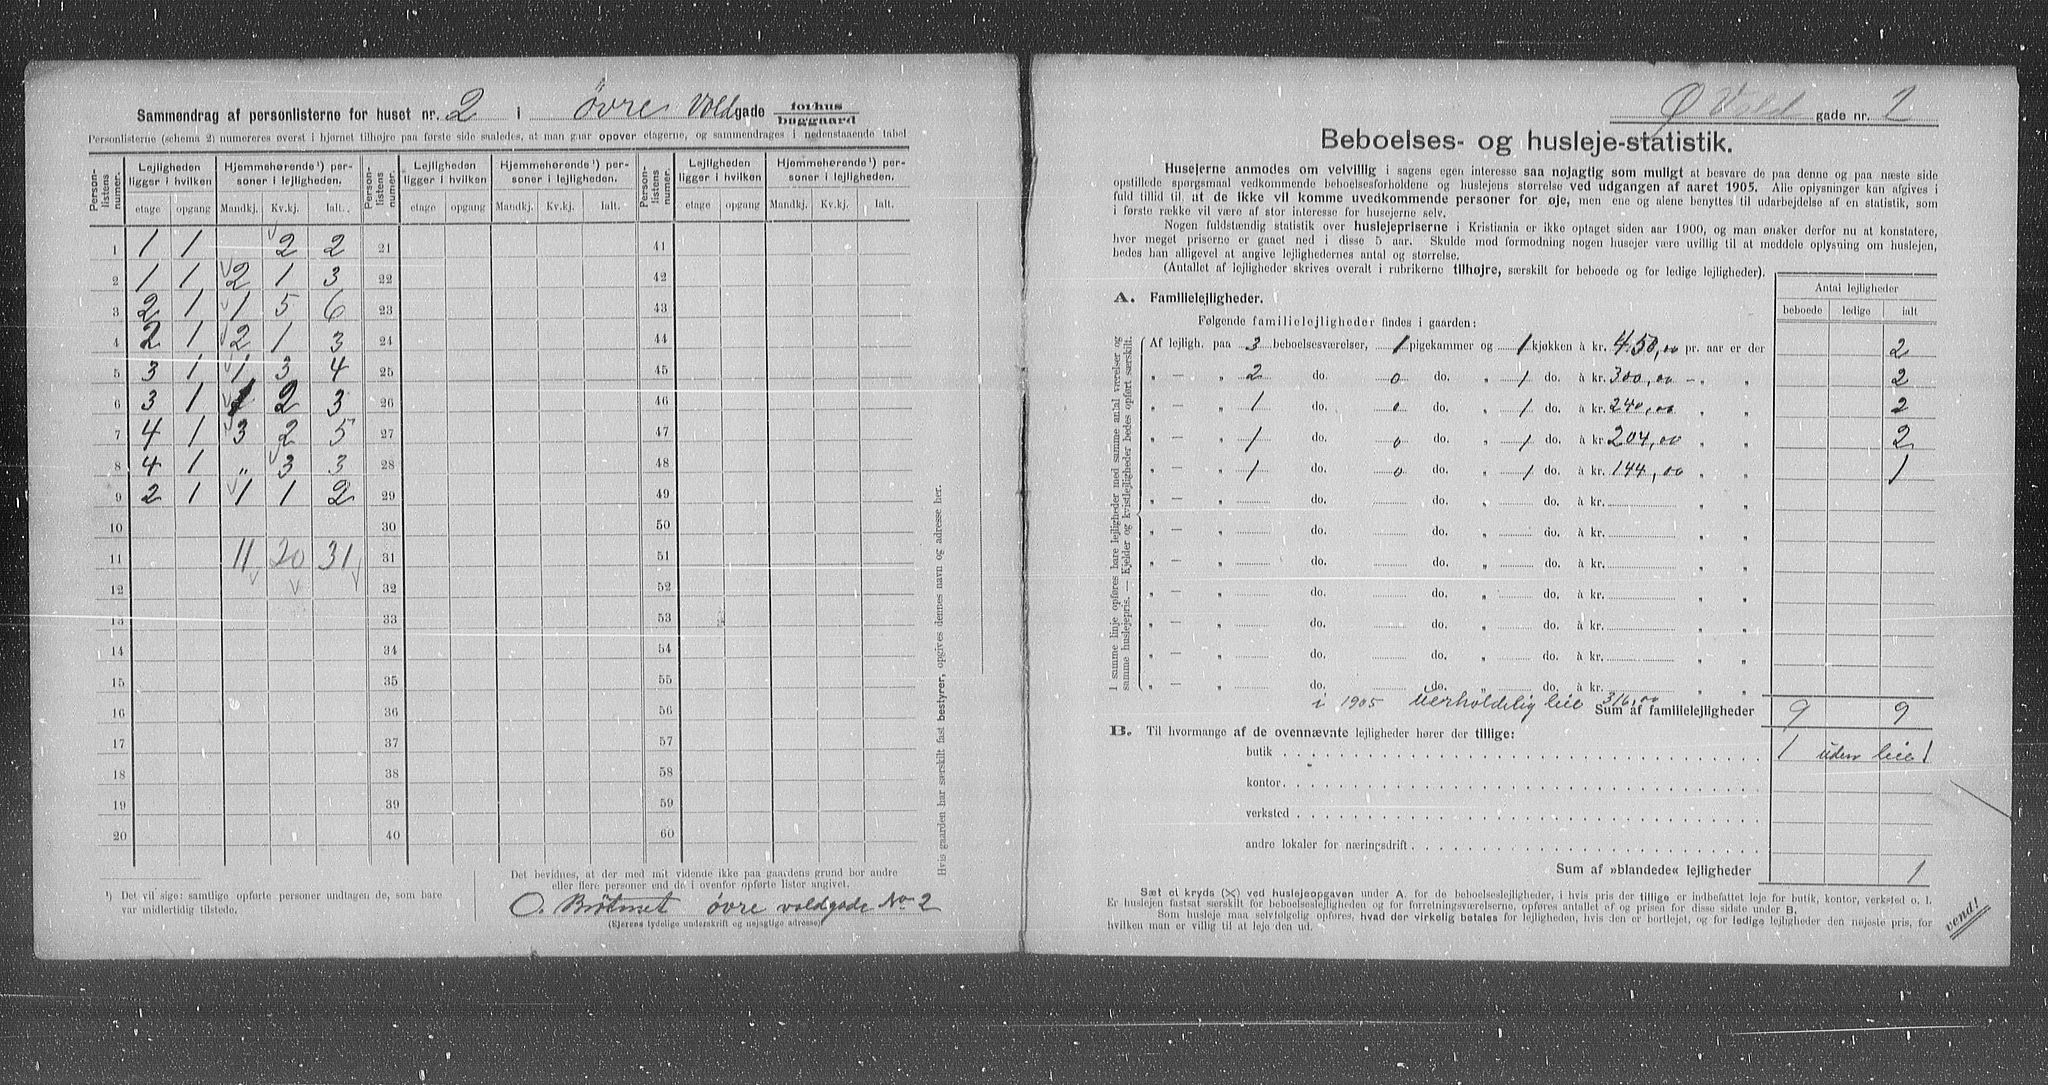 Sammendrag af personlisterne for huset nr. 2 i Øvre Voldgade forhus
baggaard
Personlisterne (schema 2) numereres øverst i hjørnet tilhøjre paa første side saaledes, at man gaar opover etagerne, og sammendrages i nedenstaaende tabel
Person-listens numer. Lejligheden ligger i hvilken Hjemmehørende¹) personer i lejligheden. Person-listens numer. Lejligheden ligger i hvilken Hjemmehørende¹) personer i lejligheden. Person-listens numer. Lejligheden ligger i hvilken Hjemmehørende¹) personer i lejligheden.
etage opgang Mandkj. Kv.kj. Ialt. etage opgang Mandkj. Kv.kj. Ialt. etage opgang Mandkj. Kv.kj. Ialt.
1 1 1 2 2 21 41
2 1 1 2 1 3 22 42
3 2 1 1 5 6 23 43
4 2 1 2 1 3 24 44
5 3 1 1 3 4 25 45
6 3 1 1 2 3 26 46
7 4 1 3 2 5 27 47
8 4 1 „ 3 3 28 48
9 2 1 1 1 2 29 49
10 30 50
11 11 20 31 31 51
12 32 52
13 33 53
14 34 54
15 35 55
16 36 56
17 37 57
18 38 58
19 39 59
20 40 60
Hvis gaarden har særskilt fast bestyrer, opgives dennes navn og adresse her.
¹) Det vil sige: samtlige opførte personer undtagen de, som bare
var midlertidig tilstede.
Det bevidnes, at der med mit vidende ikke paa gaardens grund bor andre
eller flere personer end de i ovenfor opførte lister angivet.
øvre voldgade No 2
(Ejerens tydelige underskrift og nøjagtige adresse)
Ø Vold gade nr. 2
Beboelses- og husleje-statistik.
Husejerne anmodes om velvillig i sagens egen interesse saa nøjagtig som muligt at besvare de paa denne og paa næste side
opstillede spørgsmaal vedkommende beboelsesforholdene og huslejens størrelse ved udgangen af aaret 1905. Alle oplysninger kan afgives i
fuld tillid til, at de ikke vil komme uvedkommende personer for øje, men ene og alene benyttes til udarbejdelse af en statistik, som
i første række vil være af stor interesse for husejerne selv.
Nogen fuldstændig statistik over huslejepriserne i Kristiania er ikke optaget siden aar 1900, og man ønsker derfor nu at konstatere,
hvor meget priserne er gaaet ned i disse 5 aar. Skulde mod formodning nogen husejer være uvillig til at meddele oplysning om huslejen,
bedes han alligevel at angive lejlighedernes antal og størrelse.
(Antallet af lejligheder skrives overalt i rubrikerne tilhøjre, særskilt for beboede og for ledige lejligheder).
Antal lejligheder
beboede ledige ialt
A. Familielejligheder.
Følgende familielejligheder findes i gaarden:
I samme linje opføres bare lejligheder med samme antal værelser og
samme huslejepris. — Kjelder og kvistlejligheder bedes opført særskilt.
Af lejligh. paa 3 beboelsesværelser, 1 pigekammer og 1 kjøkken à kr. 450,00 pr. aar er der 2
„ — „ 2 do. 0 do. „ 1 do. à kr. 300,00 — „ „ 2
„ — „ 1 do. 0 do. „ 1 do. à kr. 240,00 „ „ 2
„ — „ 1 do. 0 do. „ 1 do. à kr. 204,00 „ „ 2
„ — „ 1 do. 0 do. „ 1 do. à kr. 144,00 „ „ 1
„ — „ do. do. „ do. à kr. „ „
„ — „ do. do. „ do. à kr. „ „
„ — „ do. do. „ do. à kr. „ „
„ — „ do. do. „ do. à kr. „ „
„ — „ do. do. „ do. à kr. „ „
„ — „ do. do. „ do. à kr. „ „
„ — „ do. do. „ do. à kr. „ „
i 1905 uerholdelig leie 316,00
Sum af familielejligheder 9 9
B. Til hvormange af de ovennævnte lejligheder hører der tillige:
butik 1 uden leie 1
kontor
verksted
andre lokaler for næringsdrift
Sum af »blandede« lejligheder 1
Sæt et kryds (X) ved huslejeopgaven under A. for de beboelseslejligheder, i hvis pris der tillige er indbefattet leje for butik, kontor, verksted o. l.
Er huslejen fastsat særskilt for beboelseslejligheden og for forretningsværelserne, opføres antallet ef og prisen for disse sidste under B.
Som husleje maa selvfølgelig opføres, hvad der virkelig betales for lejligheden, hvis den er bortlejet, og for ledige lejligheder den nøjeste pris, for
hvilken man er villig til at leje den ud.
vend!